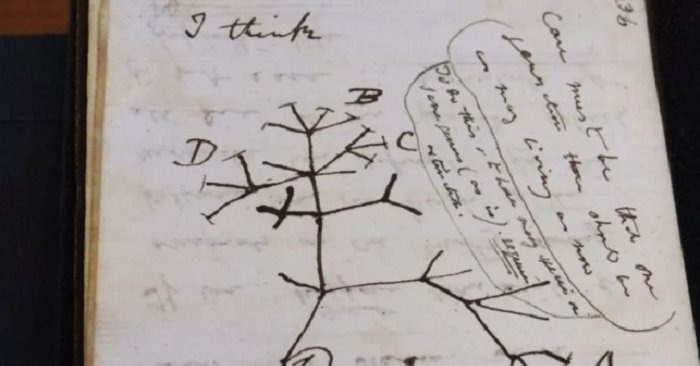 36
I think
B
C
D
Case must be that one
generation then should be
as many living as now
To do this & to have many species in
same genus (as is) requires
extinction.